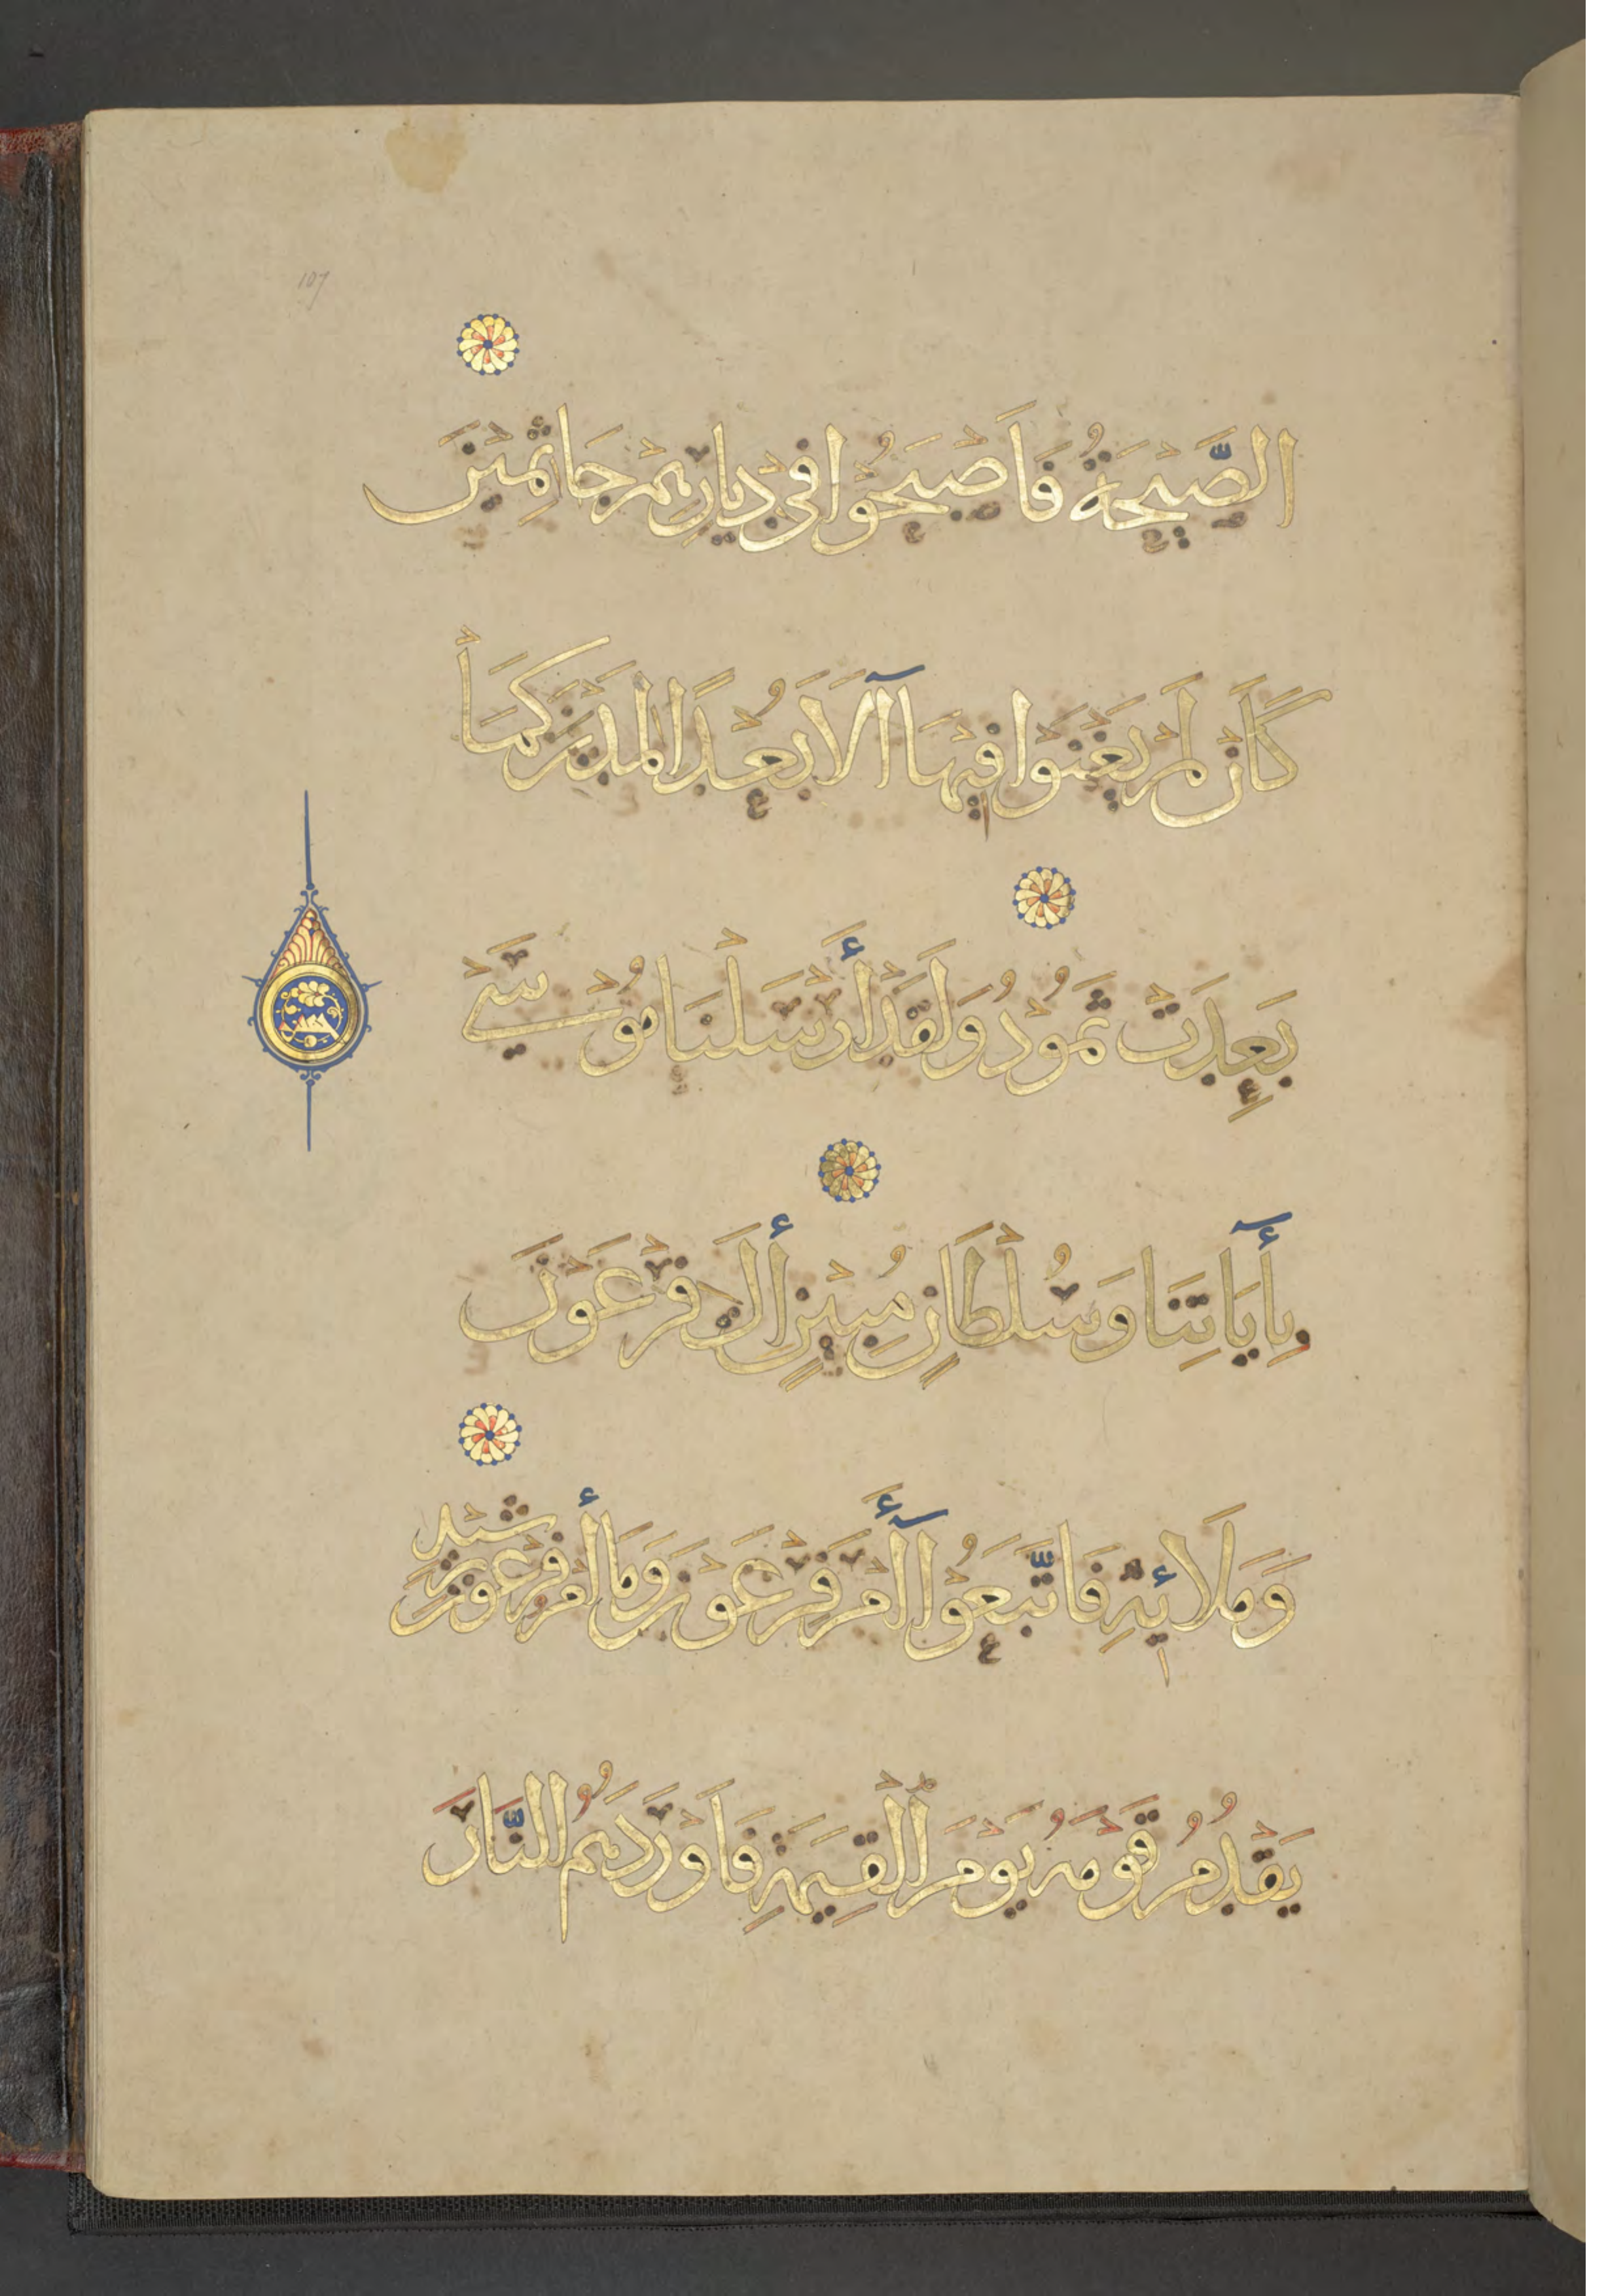 107
الصَّيْحَةُ فَأَصْبَحُوْا فِيْ دِيَارِهِمْ جَاثِمِيْنَ
كَأَنْ لَمْ يَغْنَوْا فِيْهَا آلَا بُعْدًا لِمَدْيَنَ كَمَا
بَعِدَتْ ثَمُوْدُ وَلَقَدْ أَرْسَلْنَا مُوْسَىْ
بِأَيَاتِنَا وَسُلْطَانٍ مُبِيْنٍ إلَى فِرْعَوْنَ
وَمَلَائِهِ فَاتَّبَعُوْا أَمْرَ فِرْعَوْنَ وَمَا أَمْرُ فِرْعَوْنَ بِرَشِيْدٍ
يَقْدُمُ قَوْمَهُ يَوْمَ الْقِيَمَةِ فَأَوْرَدَهُمُ النَّارَ